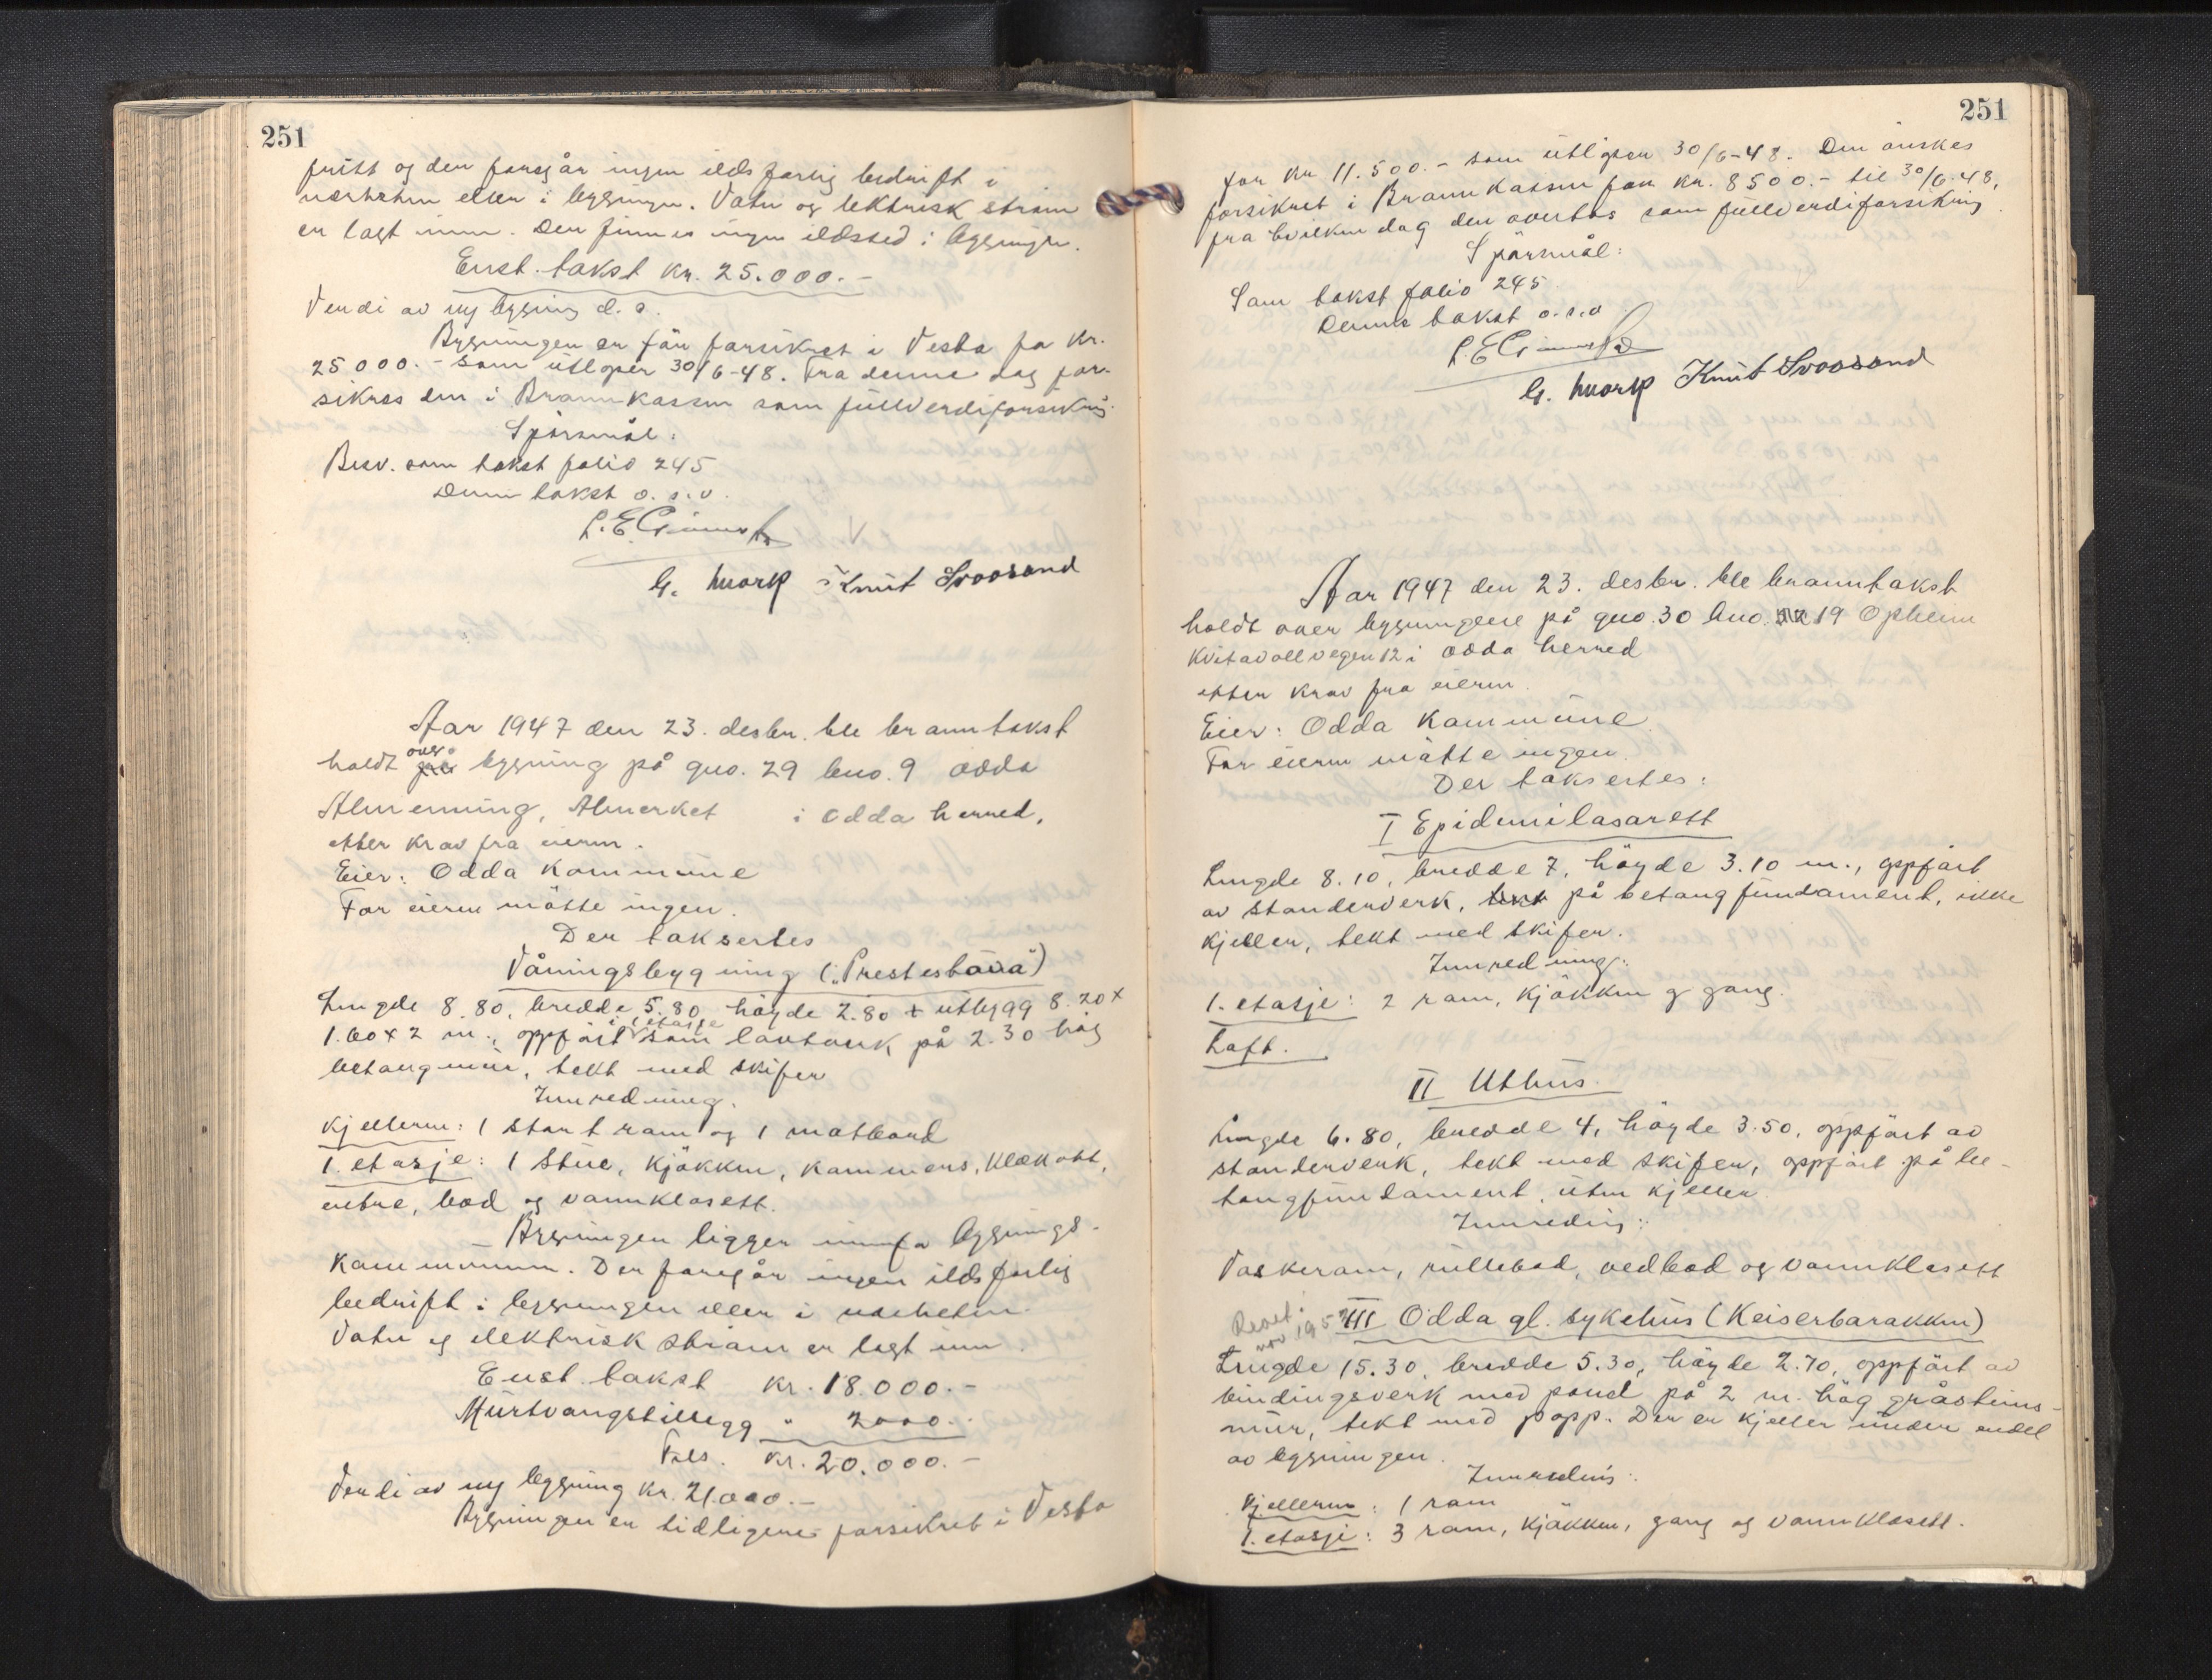 251
fritt og der foregår ingen ildsfarlig bedrift i
nærheten eller i bygningen. Vatn og lektrisk strøm
er lagt inn. Der finnes ingen ildsted i bygningen.
Enst. takst kr. 25.000.-
Verdi av ny bygning d. s.
Bygningen er før forsikret i Vesta for kr.
25000.- som utløper 30/6-48. Fra denne dag for-
sikres den i Brannkassen som fullverdiforsikring.
Spörsmål:
Besv. som takst folio 245
Denne takst o. s. v.
G. Mork Knut Svoosand
Aar 1947 den 23. desbr. ble branntakst
holdt over bygning på gno. 29 bno. 9 Odda
Almenning, Almerket i Odda herred,
etter krav fra eieren.
Eier: Odda Kommune
For eieren møtte ingen.
Der taksertes
Våningsbygning („Prestestova")
Lengde 8.80, bredde 5.80, høyde 2.80 + utbygg 8.20 x
1.60 x 2 m., oppført i 1 etasje som laftverk på 2.30 høg
betongmur, tekt med skifer
Innredning.
Kjelleren: 1 stort rom og 1 matbord
1. etasje: 1 stue, kjøkken, kammers, klekott,
entre, bod og vannklosett.
Bygningen ligger innenfor bygnings-
kommunen. Der foregår ingen ildsfarlig
bedrift i bygningen eller i nærheten.
Vatn og elektrisk strøm er lagt inn.
Enst. takst kr. 18.000.-
Murtvangstillegg " 2000.-
Tils. kr. 20.000.-
Verdi av ny bygning kr. 21.000.-
Bygningen er tidligere forsikret i Vesta
251
for kr 11.500.- som utløper 30/6-48. Den ønskes
forsikret i Brannkassen for kr. 8500.- til 30/6.48,
fra hvilken dag den overtas som fullverdiforsikring
Spörsmål:
Som takst folio 245
Denne takst o.s.v
G. Mork Knut Svoosand
Aar 1947 den 23. desbr. ble branntakst
holdt over bygningene på gno. 30 bno. 19 Opheim
Kvitavollvegen 12 i Odda herred
etter krav fra eieren.
Eier: Odda Kommune
For eieren møtte ingen.
Der taksertes:
I Epidemilasarett
Lengde 8.10, bredde 7, høyde 3.10 m., oppført
av standerverk, på betongfundament, ikke
kjeller, tekt med skifer.
Innredning:
1. etasje: 2 rom, kjøkken og gang.
Loft.
II Uthus.
Lengde 6.80, bredde 4, høyde 3.50, oppført av
standerverk, tekt med skifer, oppført på be-
tongfundament, uten kjeller.
Innredning:
Vaskerom, rullebod, vedbod og vannklosett
Revet
nov 195
III Odda gl. sykehus (Keiserbarakken)
Lengde 15.30, bredde 5.30, høyde 2.70, oppført av
bindingsverk med panel på 2 m. høg gråsteins-
mur, tekt med papp. Der er kjeller under endel
av bygningen.
Innredning:
Kjelleren: 1 rom
1. etasje: 3 rom, kjøkken, gang og vannklosett.